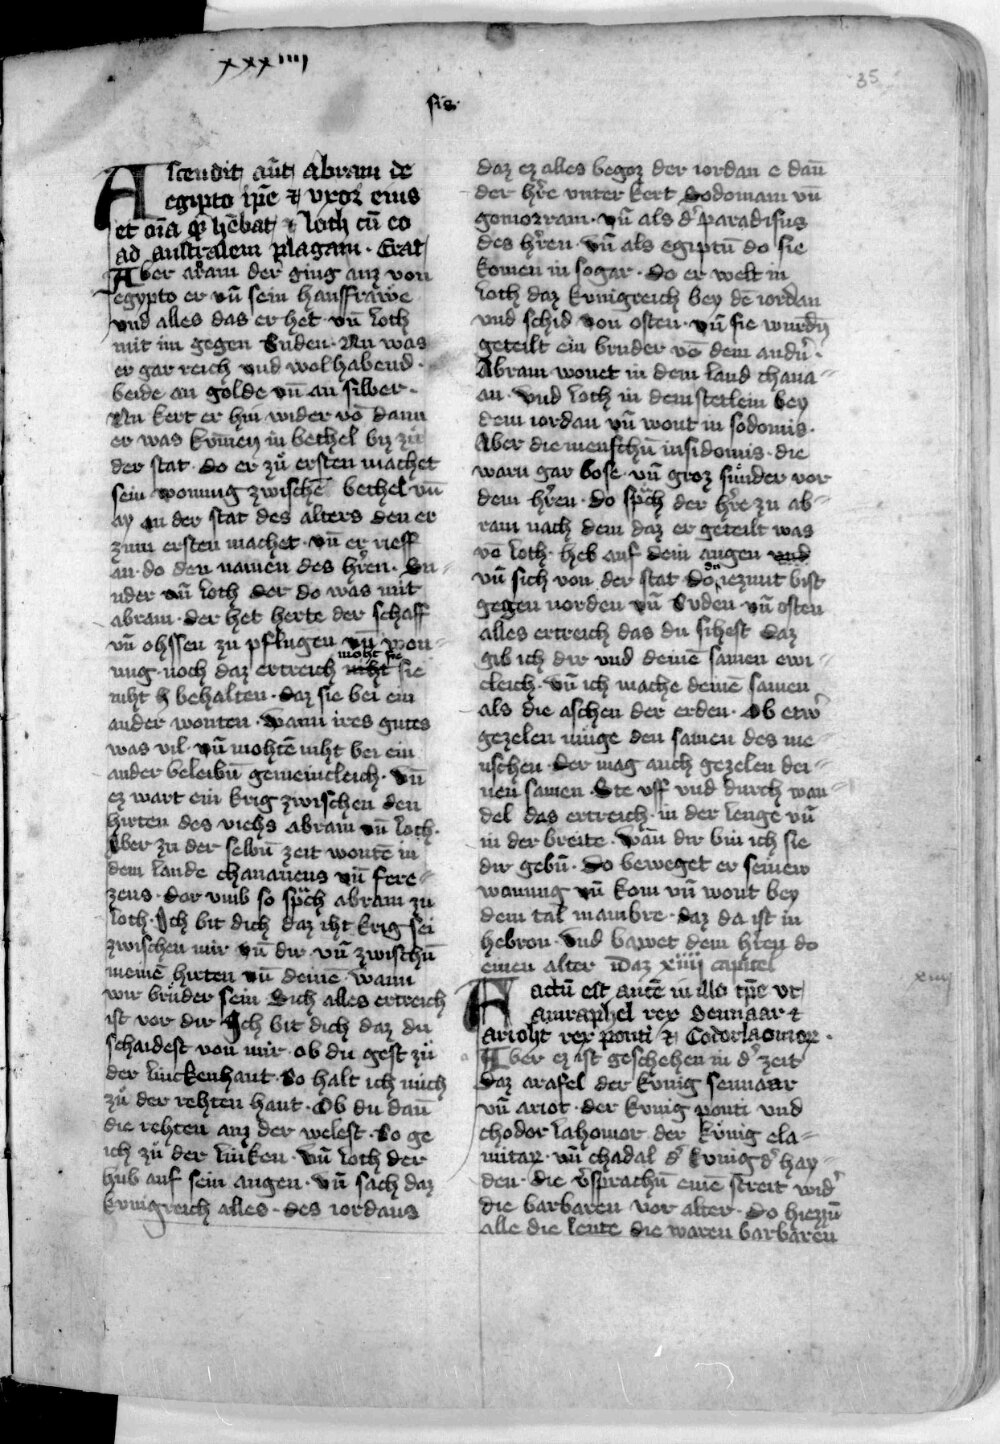 xxxiiii
35
sis
Ascendit aūt abram de
egipto ip̄e ⁊ vxor eius
et oīa q̄ hēbat ⁊ loth cū eo
ad australem plagam · Erat
Aber abram der ging auz von
egypto er vn̄ sein hausfrawe
vnd alles das er het · vn̄ loth
mit im gegen Suden · Nu was
er gar reich vnd wolhabend ·
beide an golde vn̄ an silber ·
Nu kert er hin wider vō dann
er was kumen in bethel biz zů
der stat · do er zů ersten machet
sein wonung zwischē bethel vn̄
ay an der stat des alters den er
zum ersten machet · vn̄ er rieff
an · do den namen des hr̄en · Su
nder vn̄ loth der do was mit
abram · der het herte der schaff
vn̄ ohssen zu pflugen vn̄ won-
ung · noch daz ertreich moht sie
niht h behalten · daz sie bei ein
ander wonten · wann ires gutes
was vil · vn̄ mohtē niht bei ein
ander beleibn̄ gemeincleich · Vn̄
ez wart ein krig zwischen den
hirten des viehs abram vn̄ loth ·
Aber zu der selbn̄ zeit wontē in
dem lande chananeus vn̄ fere-
zeus · dar vmb so sp̄ch abram zu
loth · Ich bit dich daz iht krig sei
zwischen mir vn̄ dir · vn̄ zwischn̄
meinē hirten vn̄ deinē · wann
wir brůder sein Sich alles ertreich
ist vor dir Ich bit dich daz du
schaidest von mir · ob du gest zů
der linckenhant · So halt ich mich
zů der rehten hant · Ob du dan̄
die rehten anz der welest · So ge
ich zů der linken · vn̄ loth der
hub auf sein augen · vn̄ sach daz
kunigreich alles · des iordans
daz ez alles begoz der iordan e dan̄
der hr̄e vnter kert Sodomam vn̄
gomorram · vn̄ als d' paradisus
des hr̄en · vn̄ als egiptū do sie
komen in sogar · do er welt in
loth daz kunigreich bey dē iordan
vnd schid von osten · vn̄ sie wurdn̄
geteilt ein bruder vō dem andn̄ ·
Abram wonet in dem land chana-
an · vnd loth in dem stetlein bey
dem iordan vn̄ wont in sodomis ·
Aber die menschn̄ in sidomis · die
warn gar bose · vn̄ groz sůnder vor
dem hr̄en · do sp̄ch der hr̄e zu ab-
ram nach dem daz er geteilt was
vō loth · heb auf dein augen vnd
vn̄ sich von der stat · do du iezunt bist
gegen norden vn̄ Suden · vn̄ osten
alles ertreich das du sihest daz
gib ich dir vnd deinē samen ewi-
cleich · vn̄ ich mache deinē samen
als die aschen der erden · Ob etw'
gezelen muge den samen des me-
nschen · der mag auch gezelen dei-
nen samen · Ste vff vnd durch wan-
del das ertreich · in der lenge vn̄
in der breite · wan̄ dir bin ich sie
dir gebn̄ · Do beweget er seinew
wanung vn̄ kom vn̄ wont bey
dem tal mambre · daz da ist in
hebron · vnd bawet dem hr̄en do
einen alter Daz xiiii capitel
xiiij
Factū est autē in illo tp̄e vt
Amraphel rex Sennaar ⁊
arioht rex ponti ⁊ Codorlaomor ·
Aber ez ist geschehen in d' zeit
Daz arafel der kunig sennaar
vn̄ ariot · der kunig ponti vnd
chodor lahomor der kunig ela-
mitar · vn̄ chadal d' kunig d' hay-
den · die v'sprachn̄ eine streit wid'
die barbaren vor alter · do hiezzn̄
alle die leute die waren barbaren